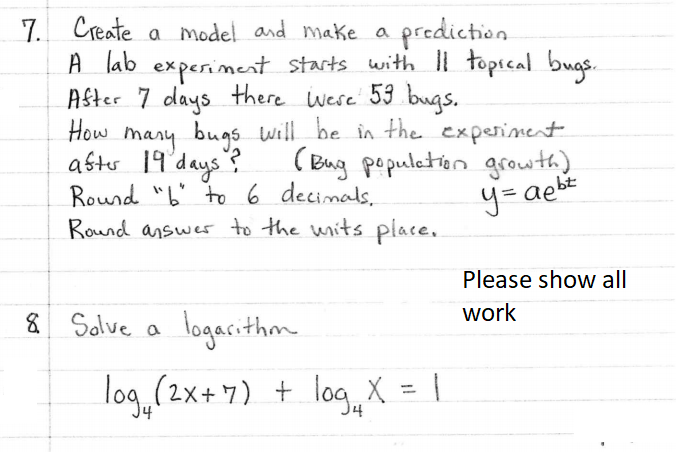 7. Create a model and make a prediction
A lab experiment starts with 11 topical bugs.
After 7 days there were 53 bugs.
How many bugs will be in the experiment
after 19 days? (Bug population growth)
Round "b" to 6 decimals. y = ae^{bt}
Round answer to the units place.
Please show all
work
8 Solve a logarithm
log₄(2x+7) + log₄ x = 1